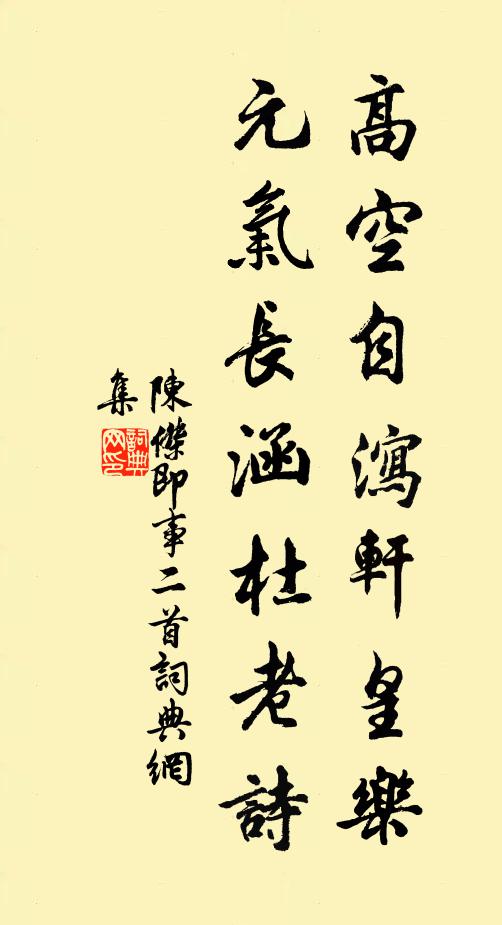 高空自瀉軒皇樂
元氣長涵杜老詩
陳傑即事二首詞典網
集
詞典網印